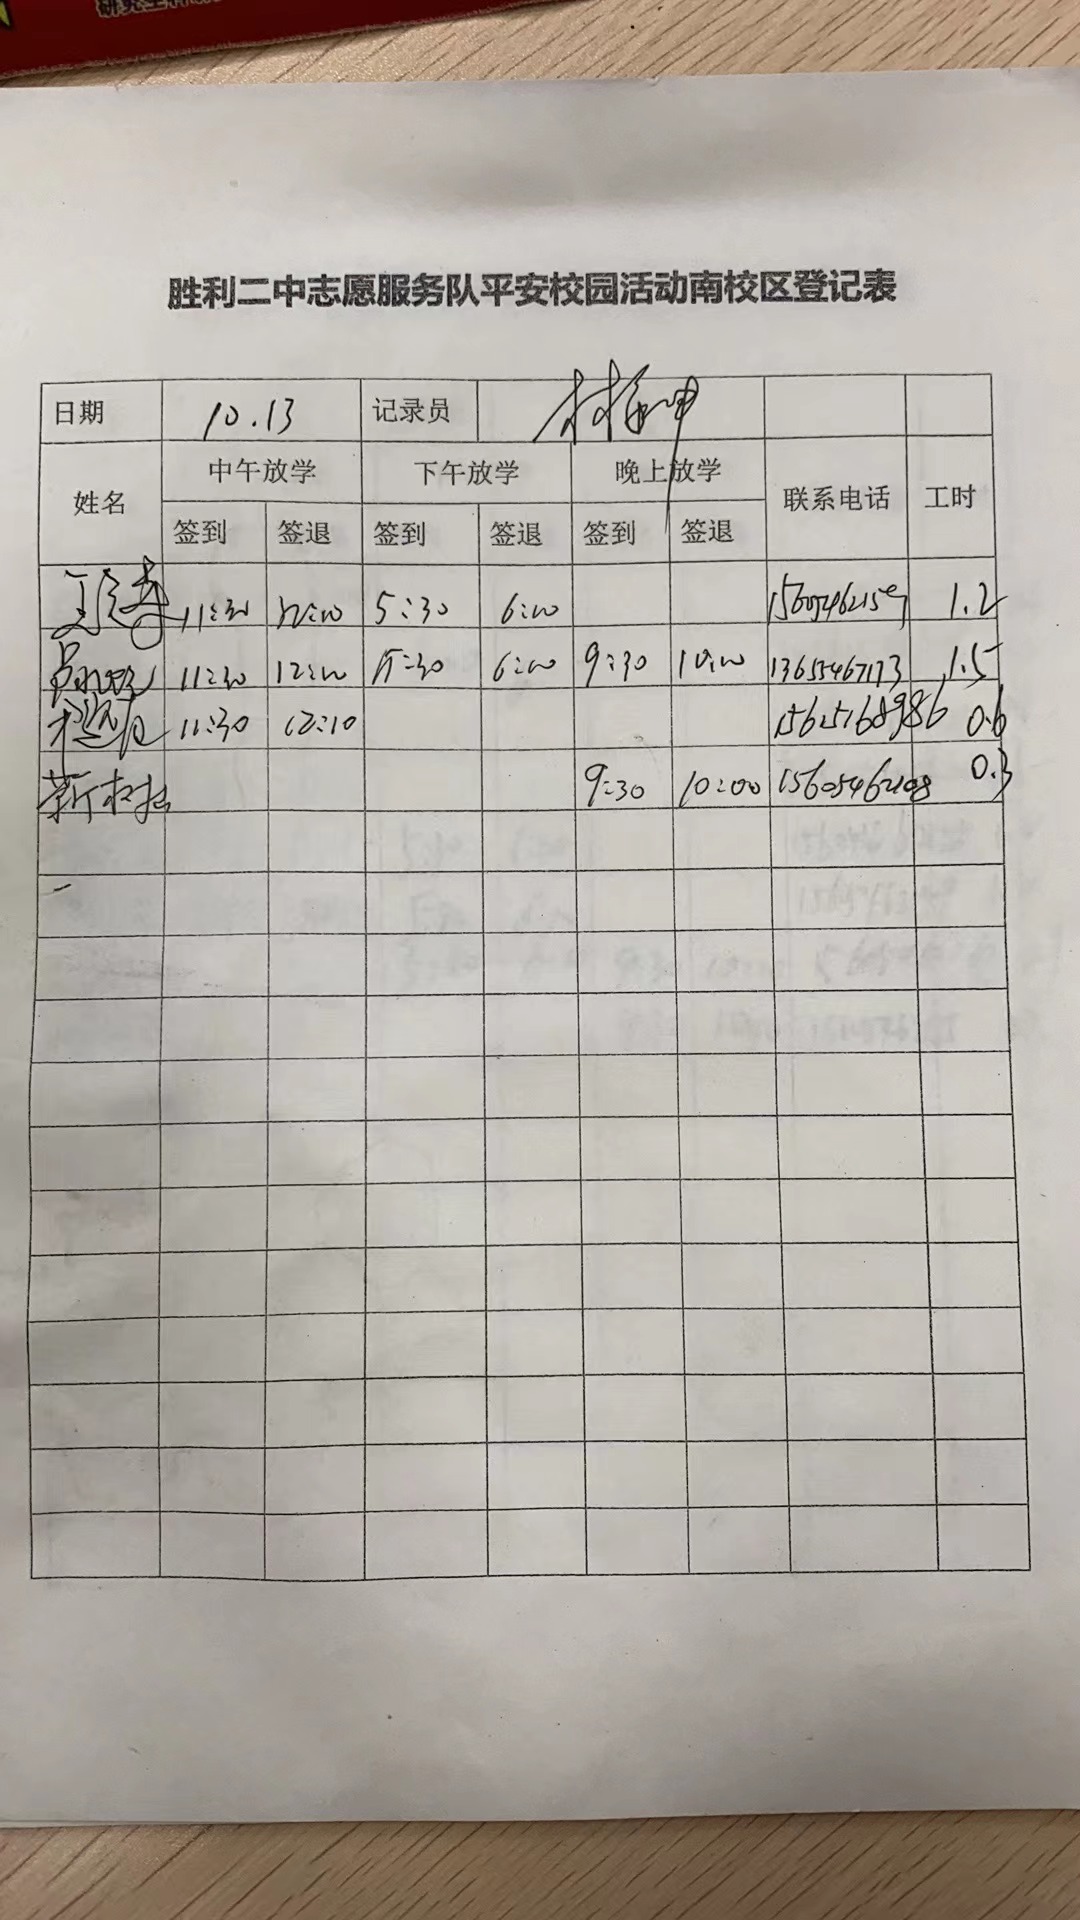 胜利二中志愿服务队平安校园活动南校区登记表
日期 10.13 记录员
姓名 中午放学 下午放学 晚上放学 联系电话 工时
签到 签退 签到 签退 签到 签退
11:30 12:00 5:30 6:00 1.2
11:30 12:00 5:30 6:00 9:30 10:00 13655467173 1.5
11:30 12:10 15625168986 0.6
9:30 10:00 15605462108 0.3